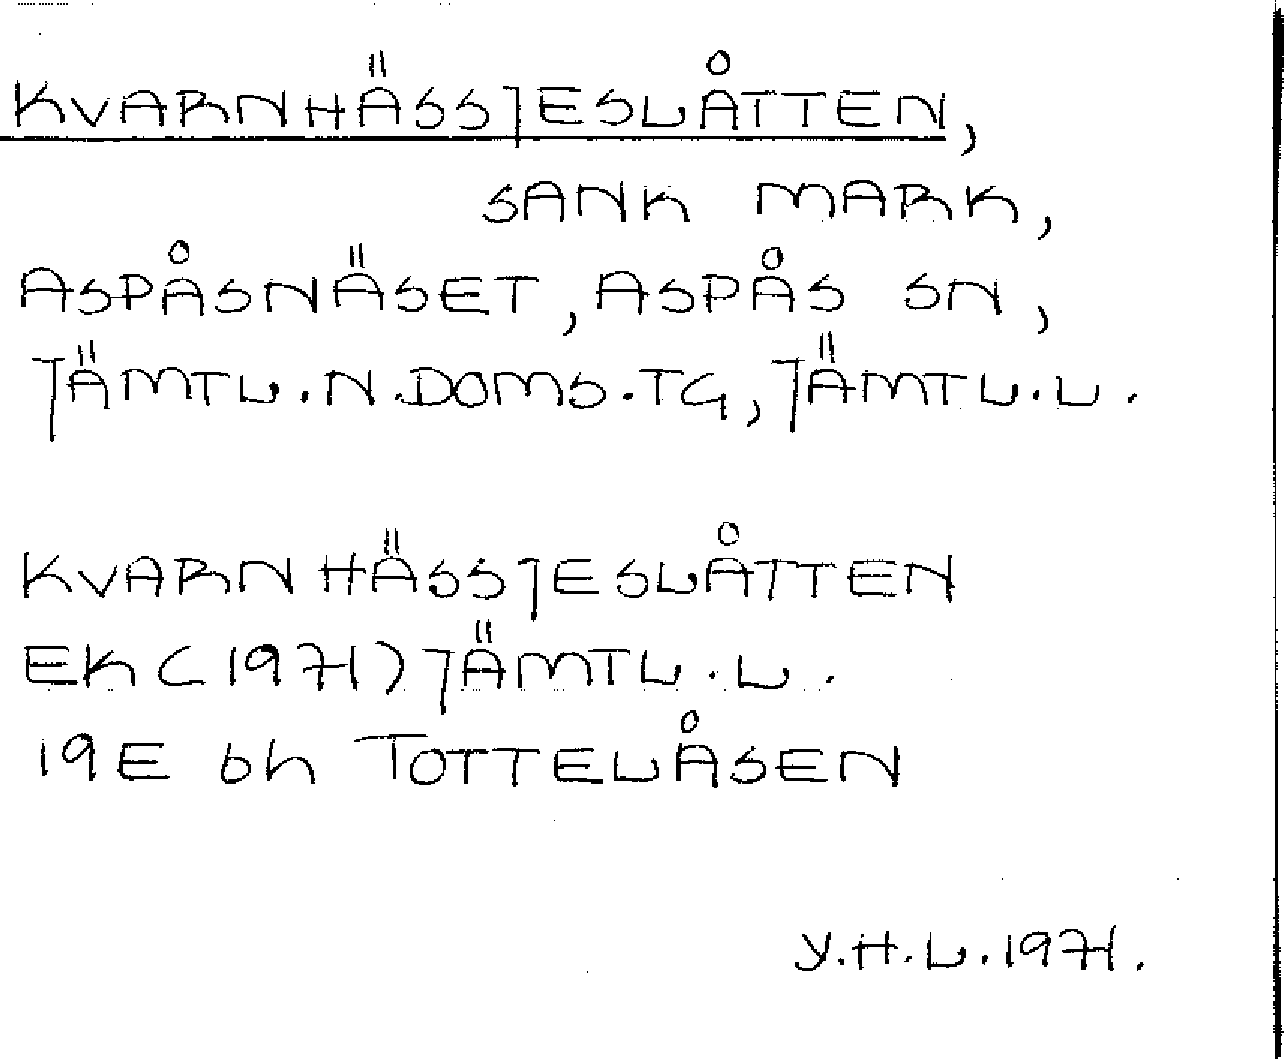 KVARNHÄSSJESLÅTTEN,
SANK MARK,
ASPÅSNÄSET, ASPÅS SN,
JÄMTL. N. DOMS. TG, JÄMTL. L.
KVARNHÄSSJESLÅTTEN
EK (1971) JÄMTL. L.
19E 6h TOTTELÅSEN
Y.H.L. 1971.